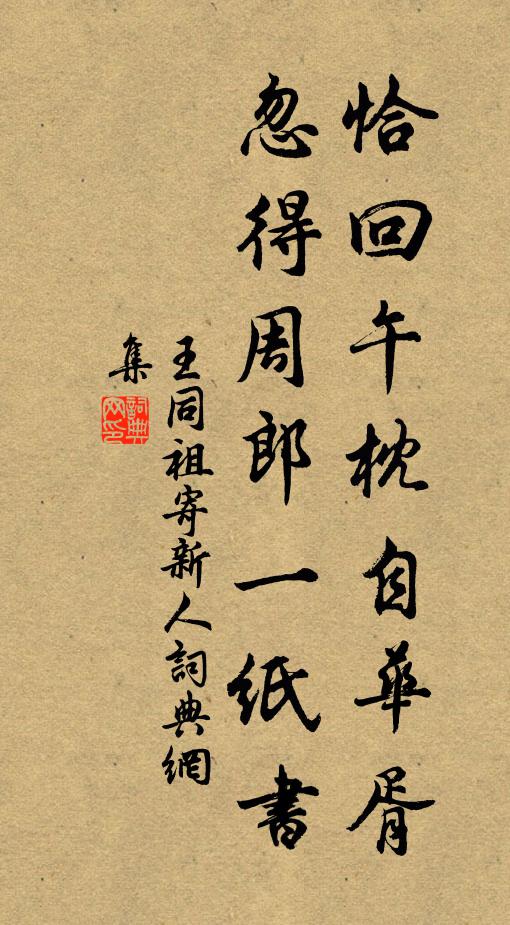 恰回午枕自華胥
忽得周郎一紙書
王同祖寄新人詞典網
集
詞典
網印